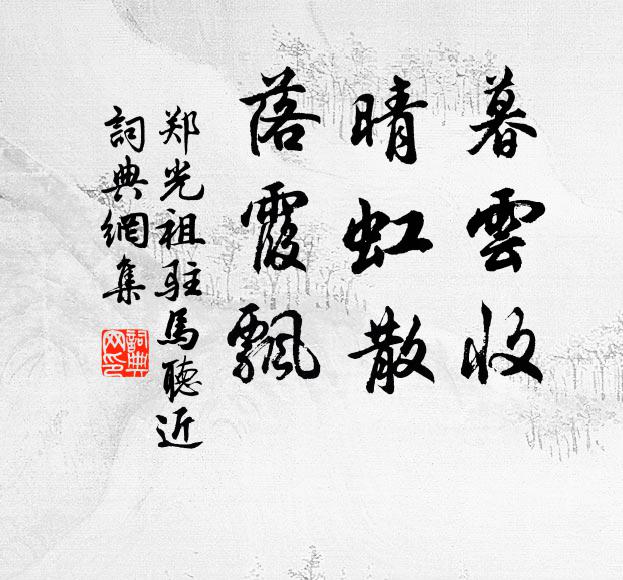 暮雲收
晴虹散
落霞飄
郑光祖驻馬聽近
詞典網集
詞典
网印